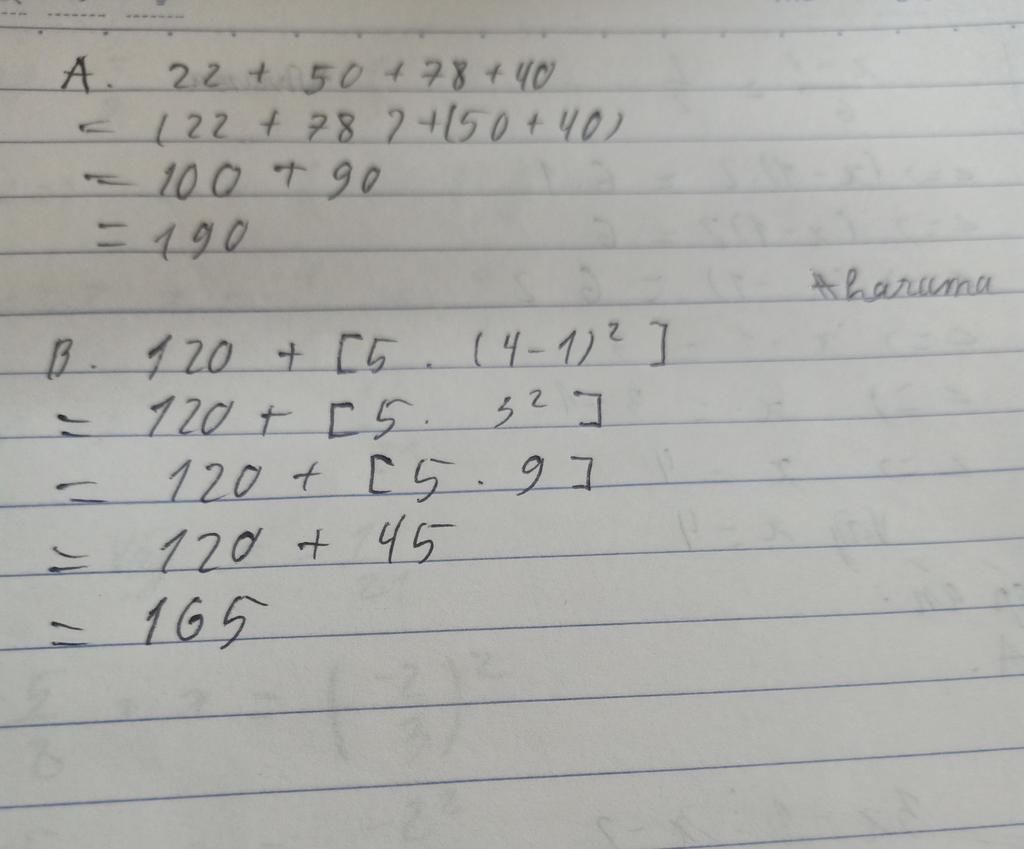 A. 22 + 50 + 78 + 40
= (22 + 78) + (50 + 40)
= 100 + 90
= 190
Aharuma
B. 120 + [5 . (4 - 1)²]
= 120 + [5 . 3²]
= 120 + [5 . 9]
= 120 + 45
= 165